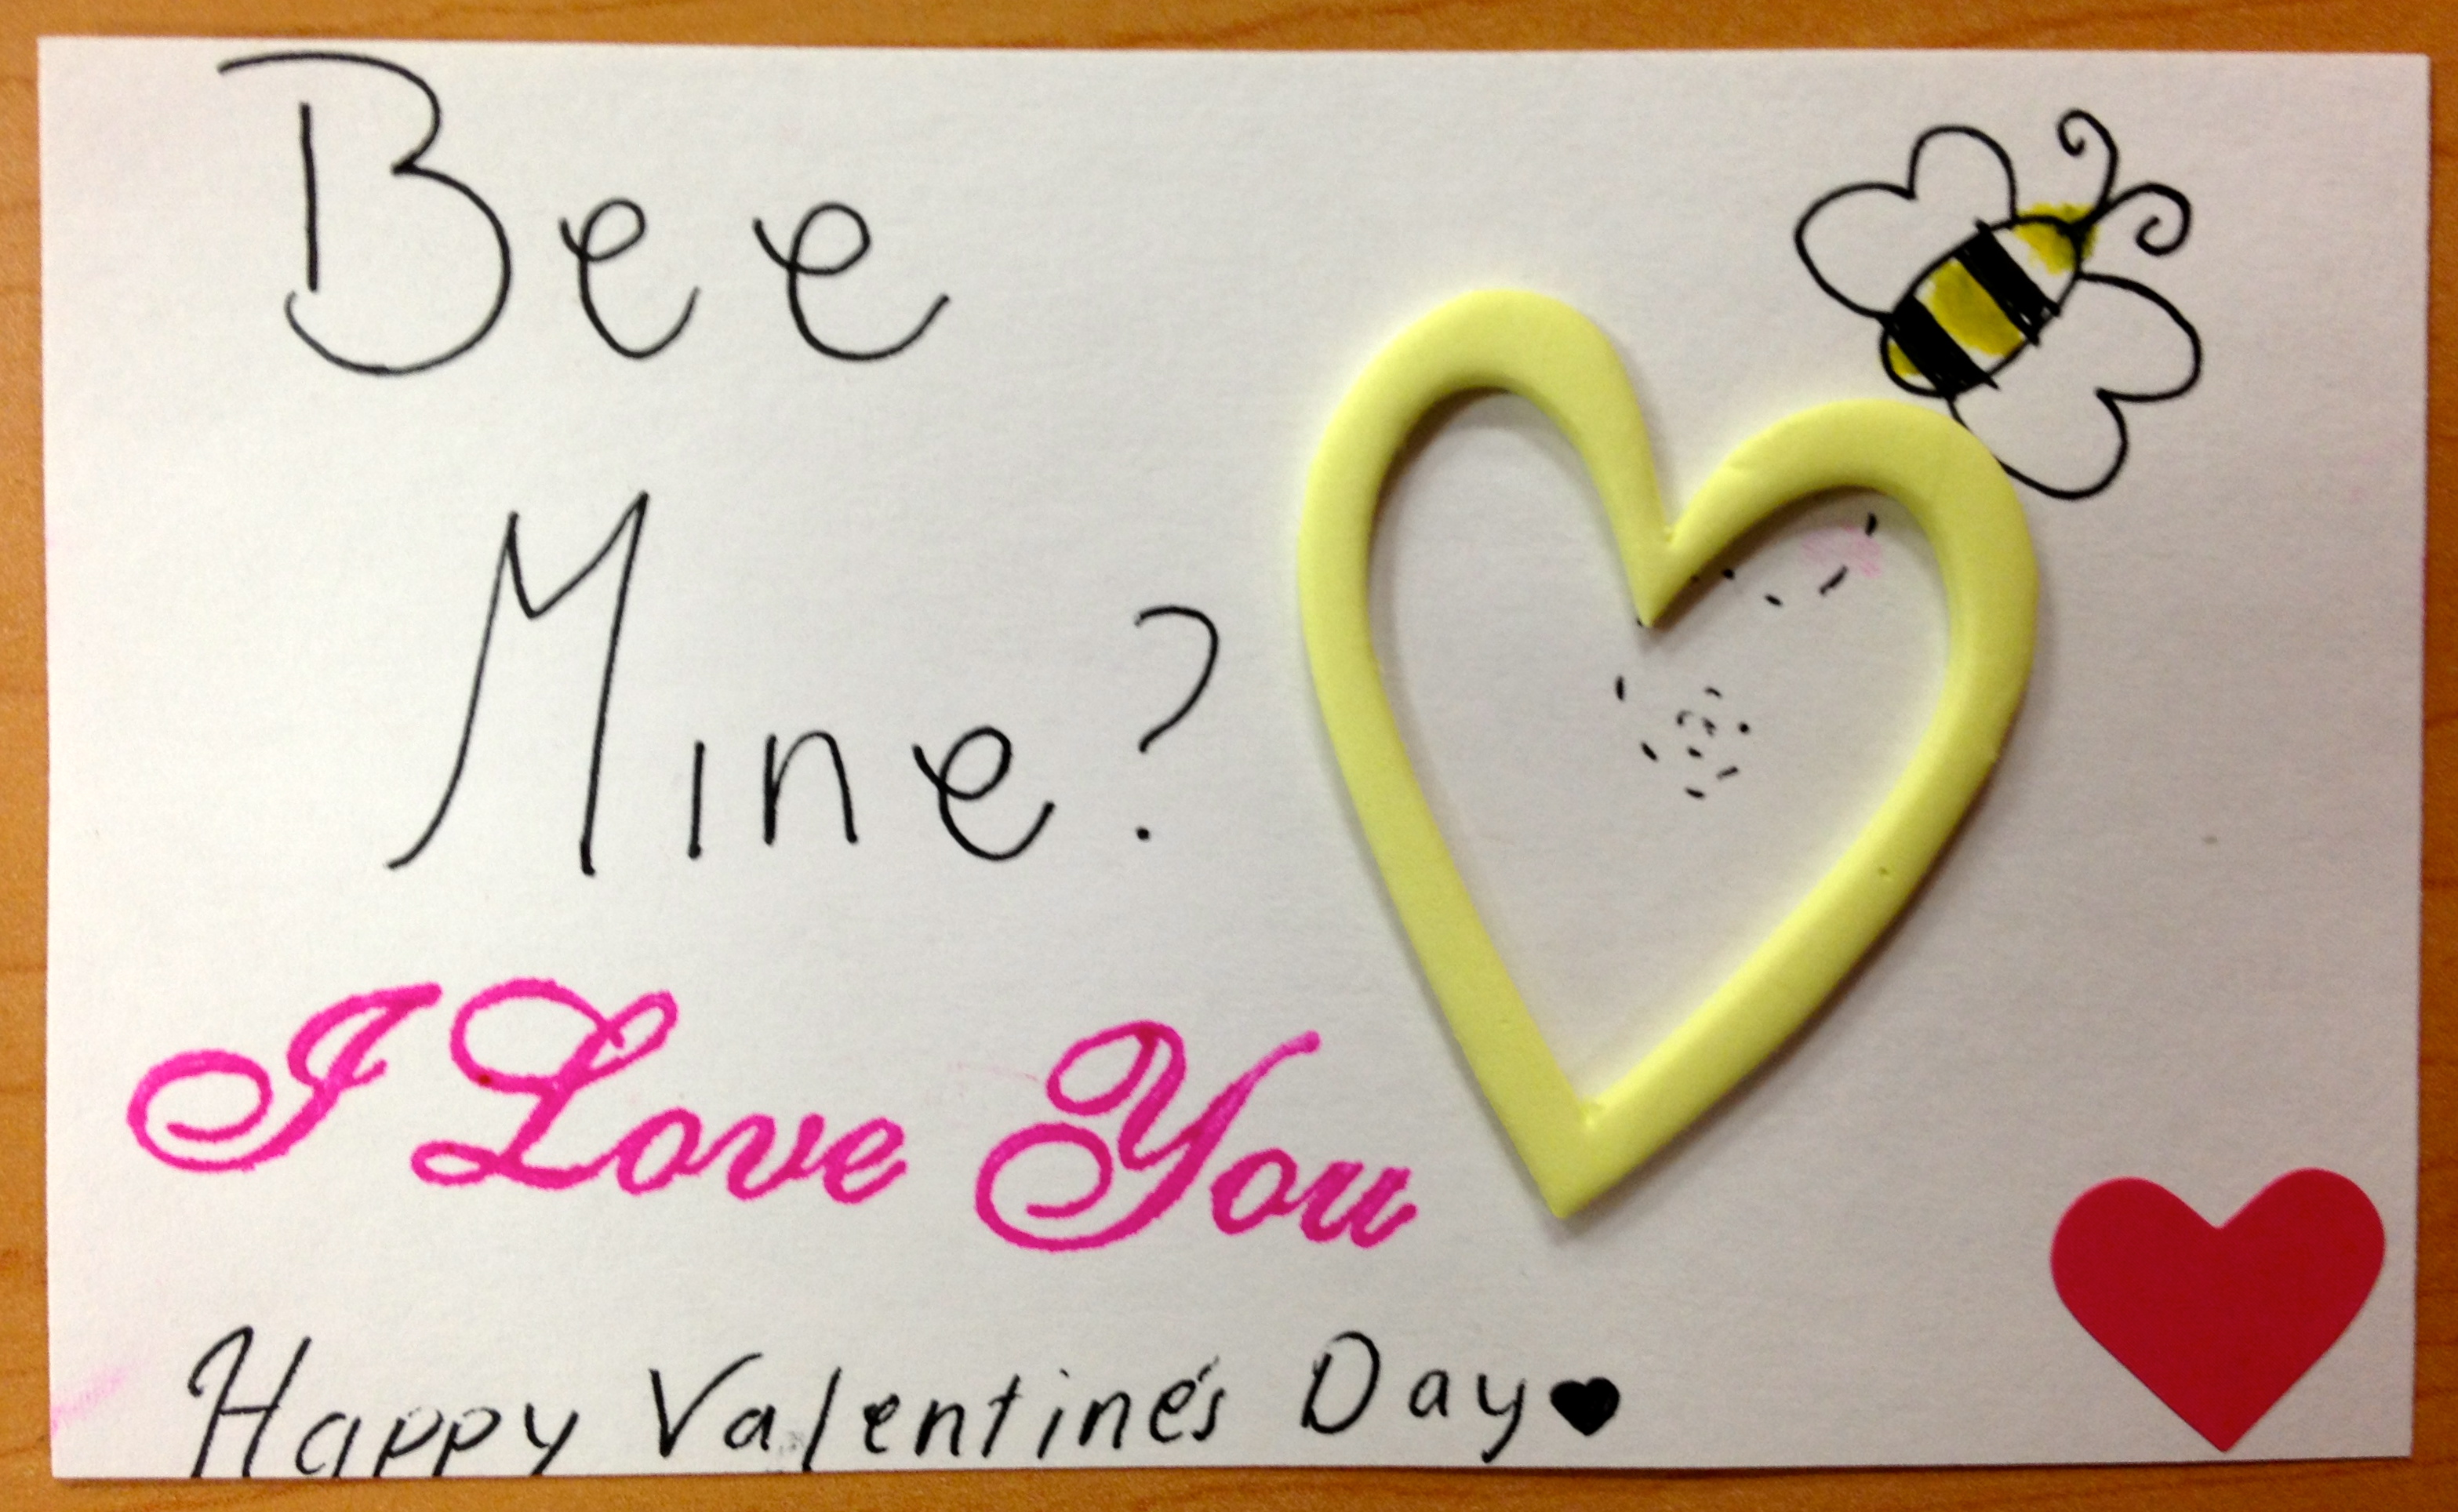 Bee
Mine?
I Love You
Happy Valentine's Day♥